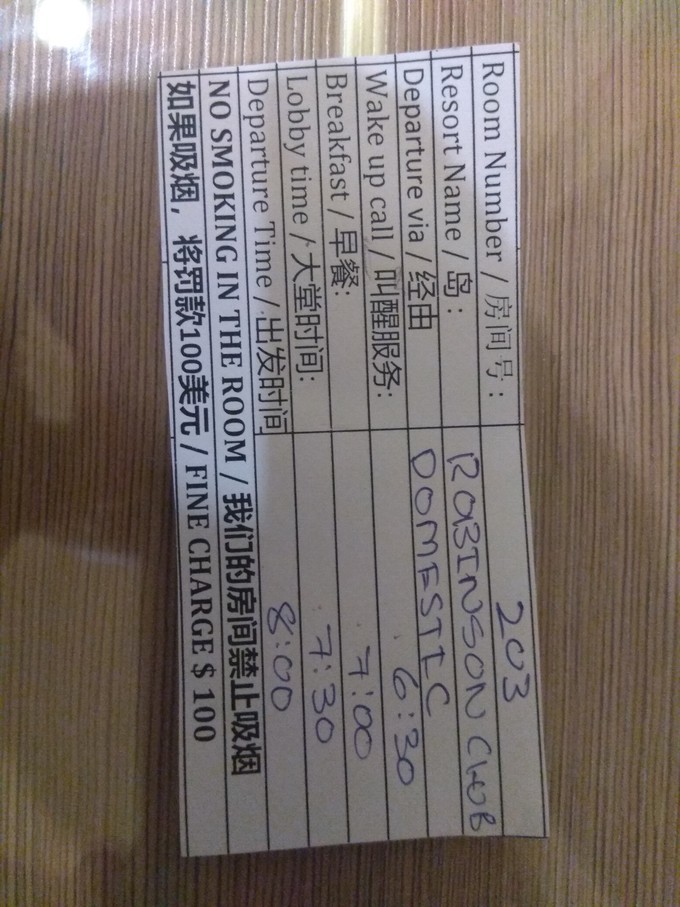 Room Number / 房间号 : 203
Resort Name / 岛 : ROBINSON CLUB
Departure via / 经由 DOMESTIC
Wake up call / 叫醒服务: 6:30
Breakfast / 早餐: 7:00
Lobby time / 大堂时间: 7:30
Departure Time / 出发时间 8:00
NO SMOKING IN THE ROOM / 我们的房间禁止吸烟
如果吸烟，将罚款100美元 / FINE CHARGE $ 100